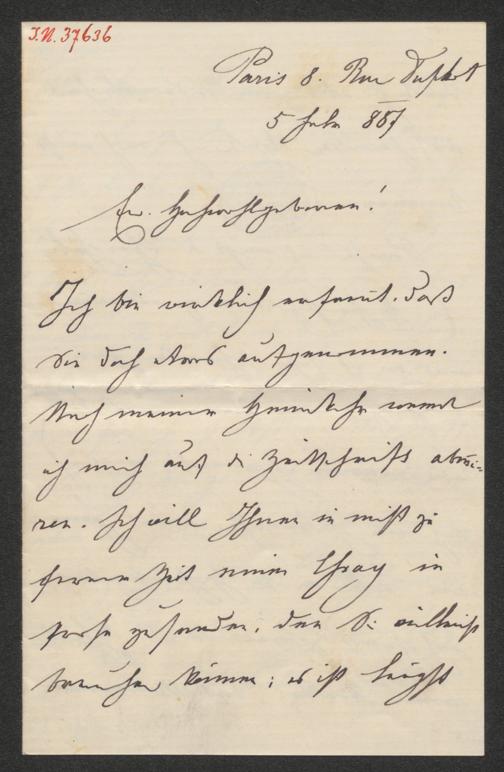 I.N. 37636
Paris 8. Rue Duphot
5 Febr 887
Ew. Hochwohlgeboren!
Ich bin wirklich erfreut, daß
Sie doch etwas aufgenommen.
Nach meiner Heimkehr werde
ich mich auf die Zeitschrift abonni-
ren. Ich will Ihnen in nicht zu
ferner Zeit einen Essay in
Prosa zusenden, den Sie vielleicht
brauchen können; es ist längst